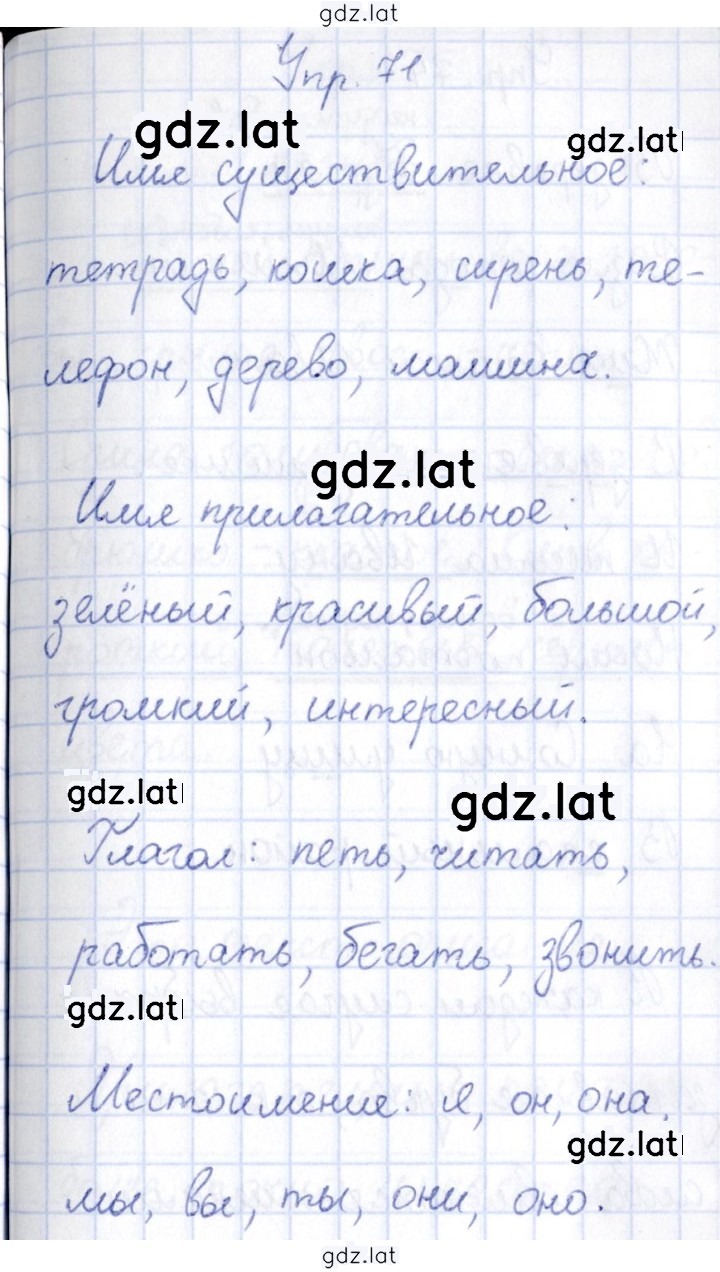 gdz.lat
Упр. 71
gdz.lat
gdz.lat
Имя существительное:
тетрадь, кошка, сирень, те-
лефон, дерево, машина.
gdz.lat
Имя прилагательное:
зелёный, красивый, большой,
громкий, интересный.
gdz.lat
gdz.lat
Глагол: петь, читать,
работать, бегать, звонить.
gdz.lat
Местоимение: я, он, она,
gdz.lat
мы, вы, ты, они, оно.
gdz.lat